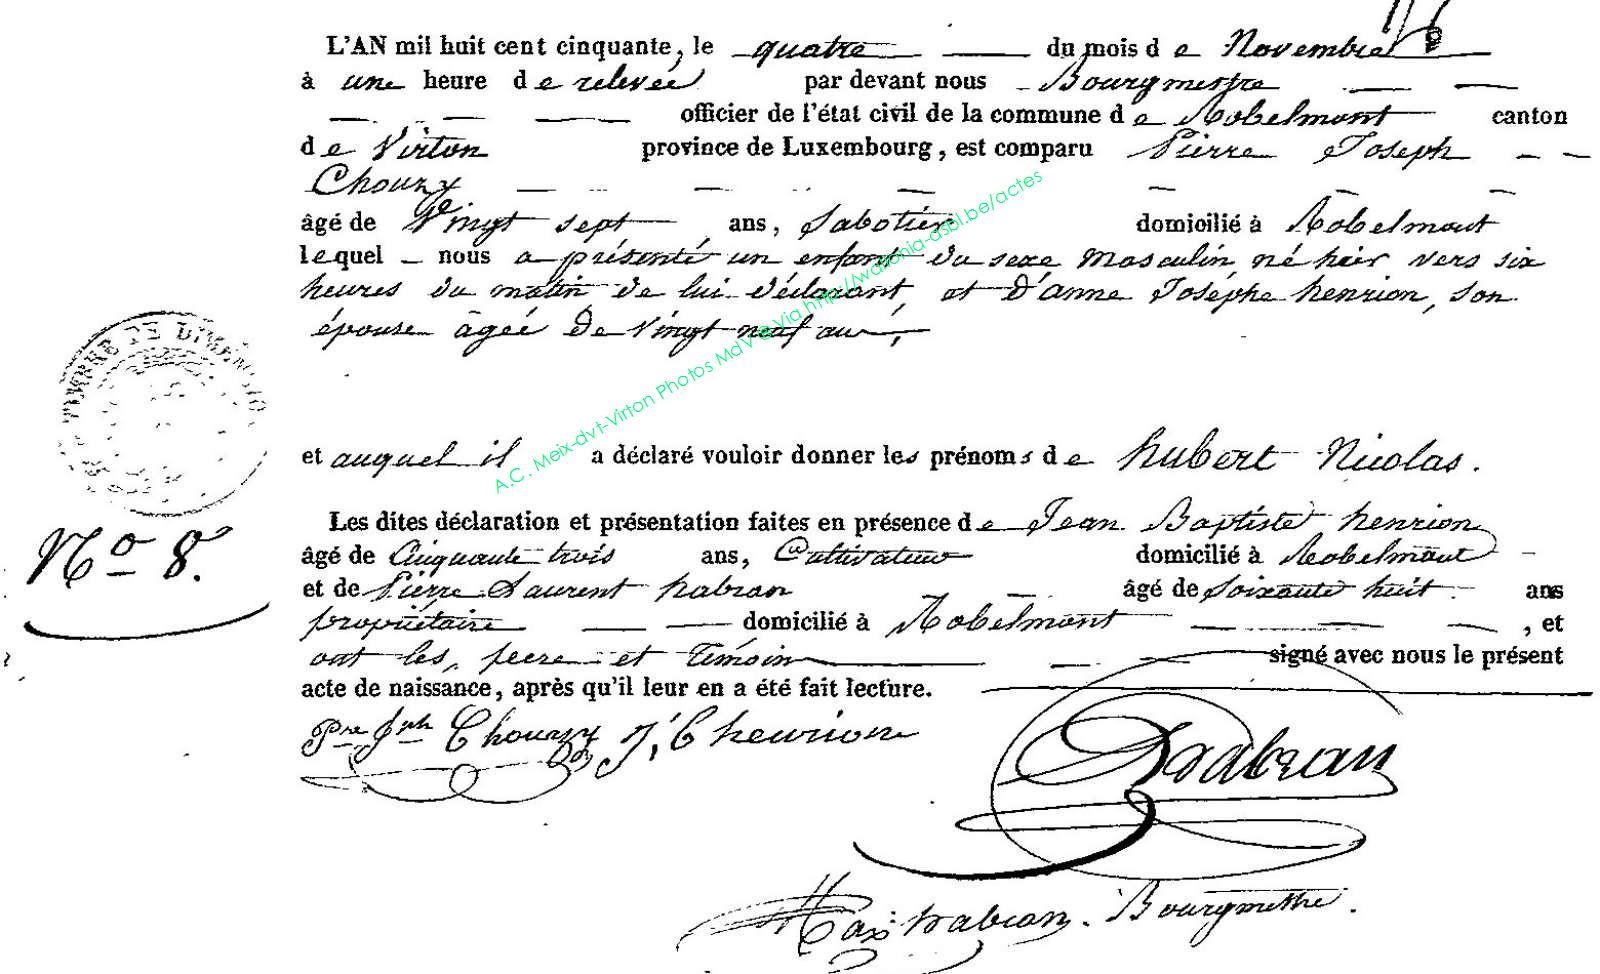 L'AN mil huit cent cinquante, le quatre du mois de Novembre
à une heure de relevée par devant nous Bourgmestre
officier de l'état civil de la commune de Robelmont canton
de Virton province de Luxembourg, est comparu Pierre Joseph
Choury
âgé de Vingt sept ans, Sabotier domicilié à Robelmont
lequel nous a présenté un enfant du sexe masculin, né hier vers six
heures du matin de lui déclarant, et d'anne Josephe henrion, son
épouse âgée de Vingt neuf ans,
et auquel il a déclaré vouloir donner les prénoms de hubert Nicolas.
Les dites déclaration et présentation faites en présence de Jean Baptiste henrion
No 8.
âgé de Cinquante trois ans, Cultivateur domicilié à Robelmont
et de Pierre Laurent habran âgé de Soixante huit ans
propriétaire domicilié à Robelmont, et
ont les, peere et témoin signé avec nous le présent
acte de naissance, après qu'il leur en a été fait lecture.
Pre Jph Choury J, B henrion
habran
habran. Bourgmestre.
A.C. Meix-dvt-Virton Photos MdV © Via http://wallonia-asbl.be/actes